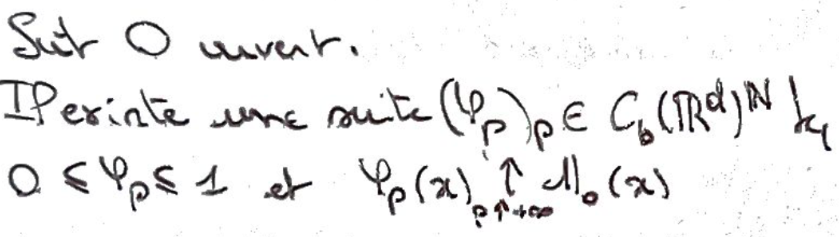 Soit O ouvert.
Il existe une suite (φ_p)_p ∈ C_b(ℝ^d)^ℕ tq
0 ≤ φ_p ≤ 1 et φ_p(x) ↑_{p↑+∞} 𝟙_O(x)